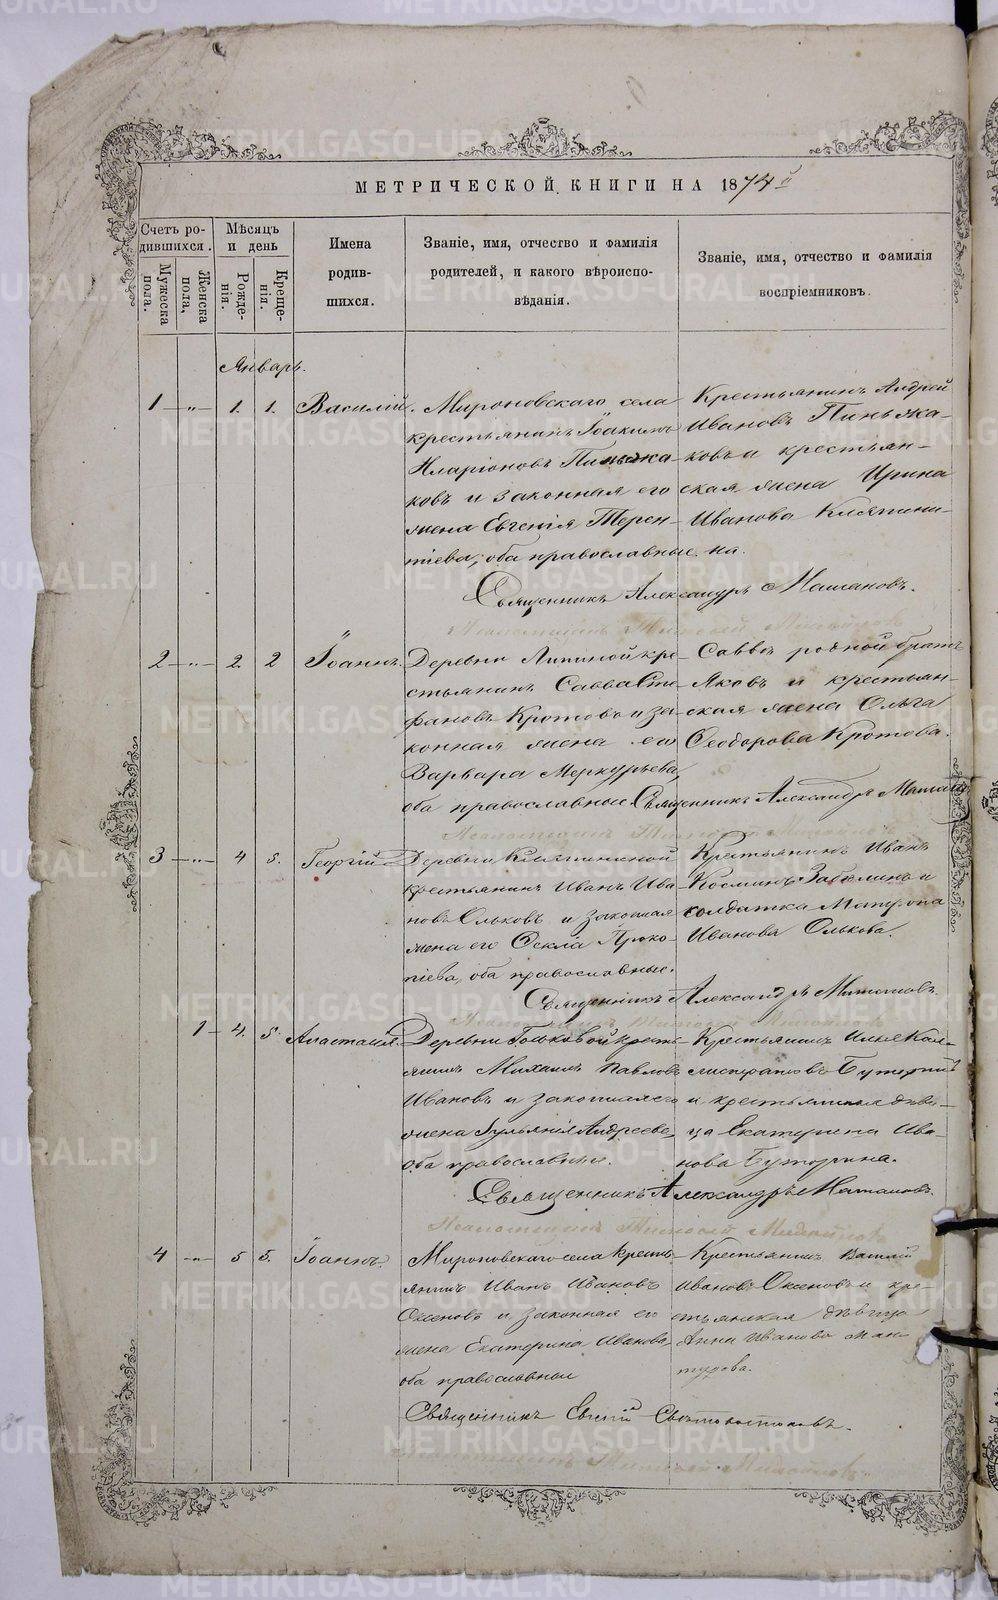 МЕТРИЧЕСКОЙ КНИГИ НА 1874й
Счетъ ро-
дившихся.
Мужеска
пола.
Женска
пола,
Мѣсяцъ
и день
Рожде-
нія.
Креще-
нія.
Имена
родив-
шихся.
Званіе, имя, отчество и фамилія
родителей, и какого вѣроиспо-
вѣданія.
Званіе, имя, отчество и фамилія
воспріемниковъ.
Январь.
1 — „ — 1. 1. Василій.
Мироновскаго села
крестьянинъ Іоакимъ
Иларіоновъ
ковъ и законная его
жена Евгенія Терен-
тіева, оба православные.
Крестьянинъ Андрей
Ивановъ
ковъ и крестьян-
ская жена Ирина
Иванова Клятини-
на.
Священникъ Александръ
2 — „ — 2 2 Іоаннъ.
Деревни Липиной кре-
стьянинъ Савва Сте-
фановъ Кротовъ и за-
конная жена его
Варвара Меркурьева,
оба православные.
Саввѣ родной братъ
Яковъ и крестьян-
ская жена Ольга
Ѳеодорова Кротова.
Священникъ Александръ
3 — „ — 4 5. Георгій
Деревни
крестьянинъ Иванъ Ива
новъ Ольковъ и законная
жена его Ѳекла Проко-
піева, оба православные.
Крестьянинъ Иванъ
Косминъ Забелинъ и
солдатка Матрона
Иванова Олькова.
Священникъ Александръ
1 — 4. 5. Анастасія.
Деревни Кресть-
янинъ Михаилъ Павловъ
Ивановъ и законная его
жена Іуліанія Андреева,
оба православные.
Крестьянинъ Илья Кал-
листратовъ
и крестьянская дѣви-
ца Екатерина Ива-
нова Буторина.
Священникъ Александръ
4 — „ — 5 5. Іоаннъ.
Мироновскаго села кресть-
янинъ Иванъ Ивановъ
Оксеновъ и законная его
жена Екатерина Иванова,
оба православные
Крестьянинъ Василій
Ивановъ Оксеновъ и кре-
стьянская дѣвица
Анна Иванова Ман-
турова.
Священникъ Евгеній
METRIKI.GASO-URAL.RU